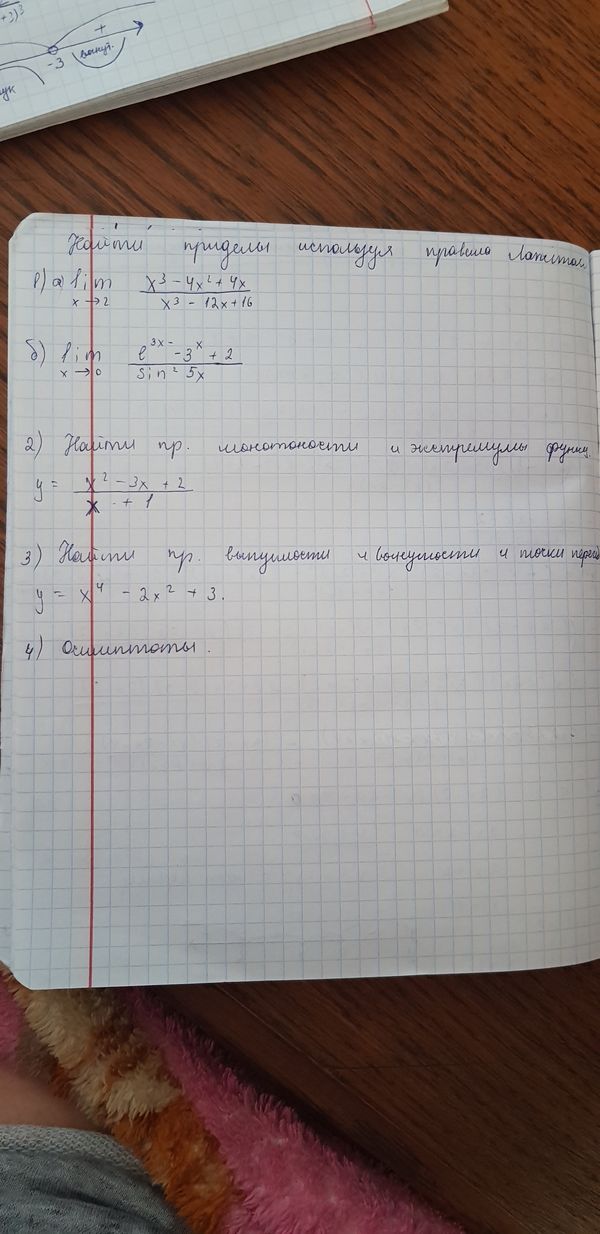 +3)³
+
-3 вогнут.
Найти приделы используя правило Лопитал
1) а) lim x³ - 4x² + 4x
x → 2 x³ - 12x + 16
б) lim e³ˣ⁻ - 3ˣ + 2
x → 0 sin² 5x
2) Найти пр. монотоности и экстремумы функц.
y = x² - 3x + 2
x + 1
3) Найти пр. выпуклости и вогнутости и точки перег
y = x⁴ - 2x² + 3.
4) Осимптоты.